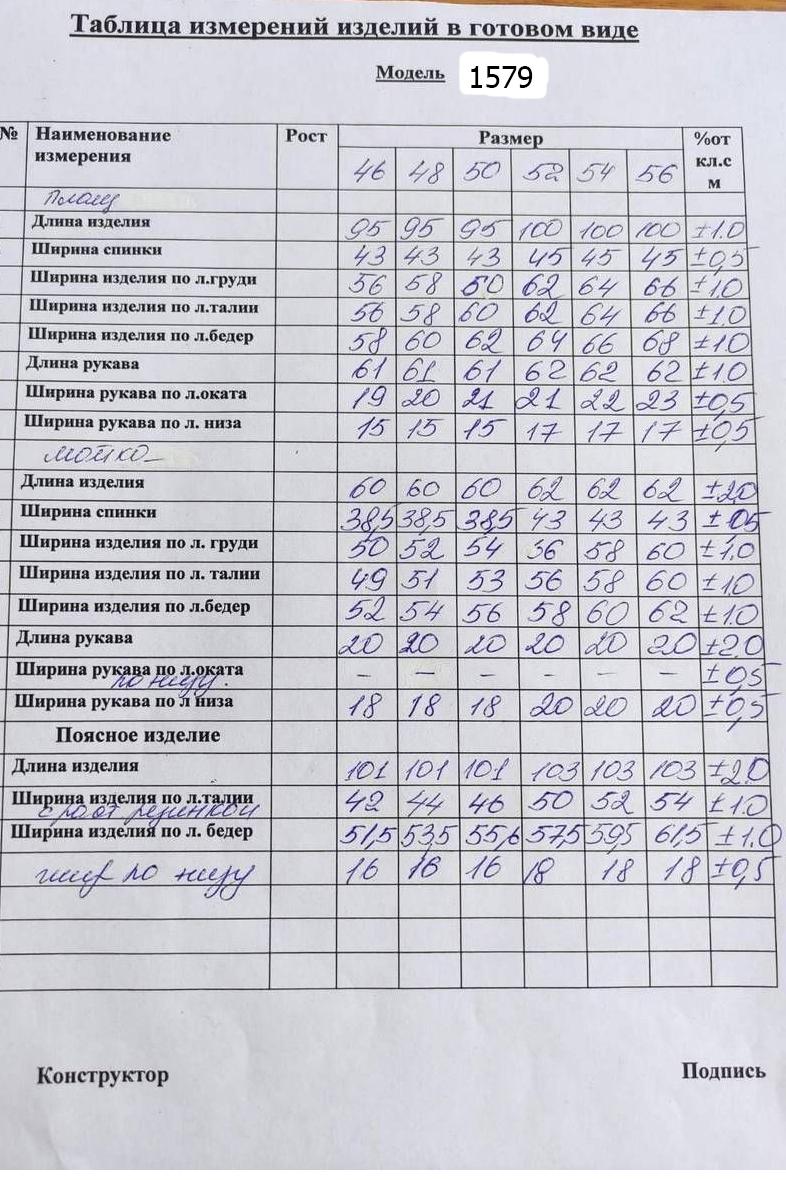 Таблица измерений изделий в готовом виде
Модель 1579
№ Наименование измерения Рост Размер %от кл.с м
46 48 50 52 54 56
Плащ
Длина изделия 95 95 95 100 100 100 ±1.0
Ширина спинки 43 43 43 45 45 45 ±0,5
Ширина изделия по л.груди 56 58 50 62 64 66 ±1,0
Ширина изделия по л.талии 56 58 60 62 64 66 ±1.0
Ширина изделия по л.бедер 58 60 62 64 66 68 ±1.0
Длина рукава 61 61 61 62 62 62 ±1.0
Ширина рукава по л.оката 19 20 21 21 22 23 ±0,5
Ширина рукава по л. низа 15 15 15 17 17 17 ±0,5
Длина изделия 60 60 60 62 62 62 ±2,0
Ширина спинки 38,5 38,5 38,5 43 43 43 ±0,5
Ширина изделия по л. груди 50 52 54 56 58 60 ±1,0
Ширина изделия по л. талии 49 51 53 56 58 60 ±1,0
Ширина изделия по л.бедер 52 54 56 58 60 62 ±1.0
Длина рукава 20 20 20 20 20 20 ±2.0
Ширина рукава по л.оката – – – – – – ±0,5
по низу.
Ширина рукава по л низа 18 18 18 20 20 20 ±0,5
Поясное изделие
Длина изделия 101 101 101 103 103 103 ±2.0
Ширина изделия по л.талии 42 44 46 50 52 54 ±1.0
резинкой
Ширина изделия по л. бедер 51,5 53,5 55,6 57,5 59,5 61,5 ±1.0
шир по низу 16 16 16 18 18 18 ±0,5
Конструктор Подпись